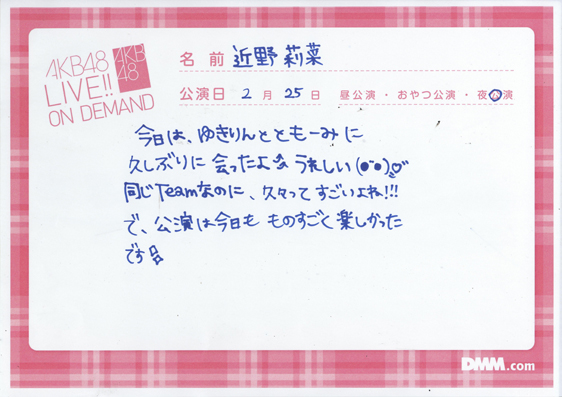 AKB48
LIVE!!
ON DEMAND
AKB
48
名 前 近野 莉菜
公演日 2 月 25 日 昼公演・おやつ公演・夜公演
今日は、ゆきりんとともーみに
久しぶりに会ったよ うれしい
同じTeamなのに、久々ってすごいよね!!!
で、公演は今日も ものすごく楽しかった
です
DMM.com